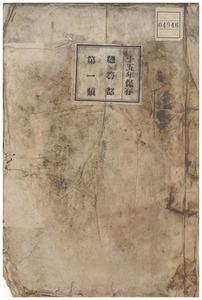 04946
十五年保存
第一類